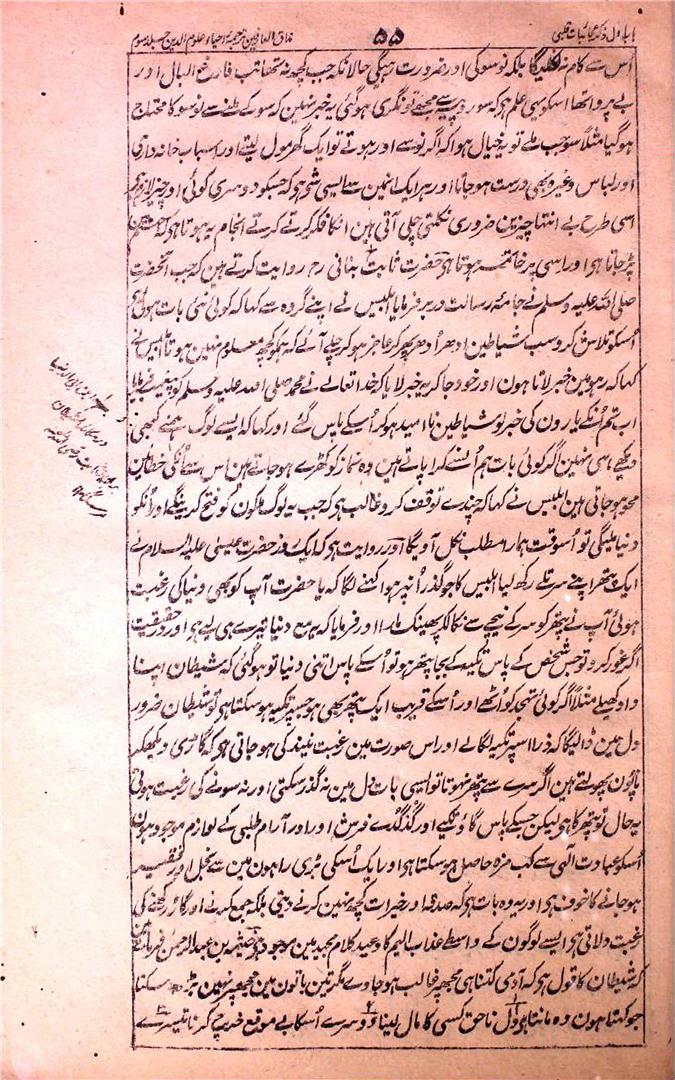 باب اول ذکر عجائبات قلبی ۵۵ مذاق العارفین ترجمۂ احیاء علوم الدین جلد سوم
اُس سے کام نہ نکلیگا بلکہ نو سو کی اور ضرورت رہیگی حالانکہ جب کچھ نہ تھا تب فارغ البال اور
بے پروا تھا اسکو یہی علم ہو کہ سو روپیہ سے مجھے تونگری ہوگئی یہ خبر نہین کہ سو کے ملنے سے نو سو کا محتاج
ہوگیا مثلاً سو جب ملے تو یہ خیال ہوا کہ اگر نو سے اور ہوتے تو ایک گھر مول لیتے اور اسباب خانہ داری
اور لباس وغیرہ بھی درست ہوجاتا اور ہر ایک انمین سے ایسی شی ہی کہ جسکو دوسری کوئی اور چیز لازم ہو
اسی طرح بے انتہا چیزین ضروری نکلتی چلی آتی ہین انکا فکر کرتے کرتے انجام یہ ہوتا ہی کہ جہنم مین
پڑجاتا ہی اور اسی پر خاتمہ ہوتا ہی حضرت ثابت بنانی رح روایت کرتے ہین کہ جب آنحضرت
صلی اللہ علیہ وسلم نے جامۂ رسالت در بر فرمایا ابلیس نے اپنے گروہ سے کہا کہ کوئی نئی بات ہوئی ہی
اُسکو تلاش کرو سب شیاطین ادھر اُدھر پھر کر عاجز ہوکر چلے آئے کہ ہمکو کچھ معلوم نہین ہوتا ابلیس نے
کہا کہ رہو مین خبر لاتا ہون اور خود جاکر یہ خبر لایا کہ خدا تعالے نے محمد صلی اللہ علیہ وسلم کو پیغمبر فرمایا
اب تم اُنکے یارون کی خبر لو شیاطین نا امید ہوکر اُسکے پاس گئے اور کہا کہ ایسے لوگ ہمنے کبھی
دیکھے ہی نہین اگر کوئی بات ہم اُنسے کرا پاتے ہین وہ نماز کو کھڑے ہوجاتے ہین اس سے اُنکی خطائین
محو ہوجاتی ہین ابلیس نے کہا کہ چندے توقف کرو غالب ہی کہ جب یہ لوگ ملکون کو فتح کرینگے اور اُنکو
دنیا ملیگی تو اُسوقت ہمارا مطلب نکل آویگا اور روایت ہی کہ ایک روز حضرت عیسیٰ علیہ السلام نے
ایک پتھر اپنے سر تلے رکھ لیا ابلیس کا جو گذر اُنپر ہوا کہنے لگا کہ یا حضرت آپ کو بھی دنیا کی رغبت
ہوئی آپ نے پتھر کو سر کے نیچے سے نکالکر پھینک مارا اور فرمایا کہ یہ مع دنیا تیرے ہی لیے ہی اور درحقیقت
اگر غور کرو تو جس شخص کے پاس تکیہ کے بجا پتھر ہو تو اُسکے پاس اتنی دنیا تو ہوگئی کہ شیطان اپنا
داو کھیلے مثلاً اگر کوئی تہجد کو اُٹھے اور اُسکے قریب ایک پتھر بھی ہو جسپر تکیہ ہوسکتا ہی تو شیطان ضرور
دل مین ڈالیگا کہ ذرا اسپر تکیہ لگالے اور اس صورت مین رغبت نیند کی ہوجاتی ہی کہ گاڑی دیکھکر
پاؤن پھولتے ہین اگر سرے سے پتھر نہوتا تو ایسی بات دل مین نہ گذر سکتی اور نہ سونے کی رغبت ہوتی
یہ حال تو پتھر کا ہی لیکن جسکے پاس گاؤ تکیے اور گدگدے فرش اور اور آرام طلبی کے لوازم موجود ہون
اُسکو عبادت الٰہی سے کب مزہ حاصل ہوسکتا ہی اور ایک اُسکی بڑی راہون مین سے بخل اور فقیر
ہوجانے کا خوف ہی اور یہ وہ بات ہی کہ صدقہ اور خیرات کچھ نہین کرنے دیتی بلکہ جمع کرنے اور گاڑ رکھنے کی
رغبت دلاتی ہی ایسے لوگون کے واسطے عذاب الیم کا وعید کلام مجید مین موجود ہی خیثمہ بن عبد الرحمن فرماتے ہین
کہ شیطان کا قول ہی کہ آدمی کتنا ہی مجھپر غالب ہوجاوے مگر تین باتون مین مجھپر نہین بڑھ سکتا
جو کہتا ہون وہ مانتا ہی اول ناحق کسی کا مال لینا دوسرے اُسکا بے موقع خرچ کرنا تیسرے